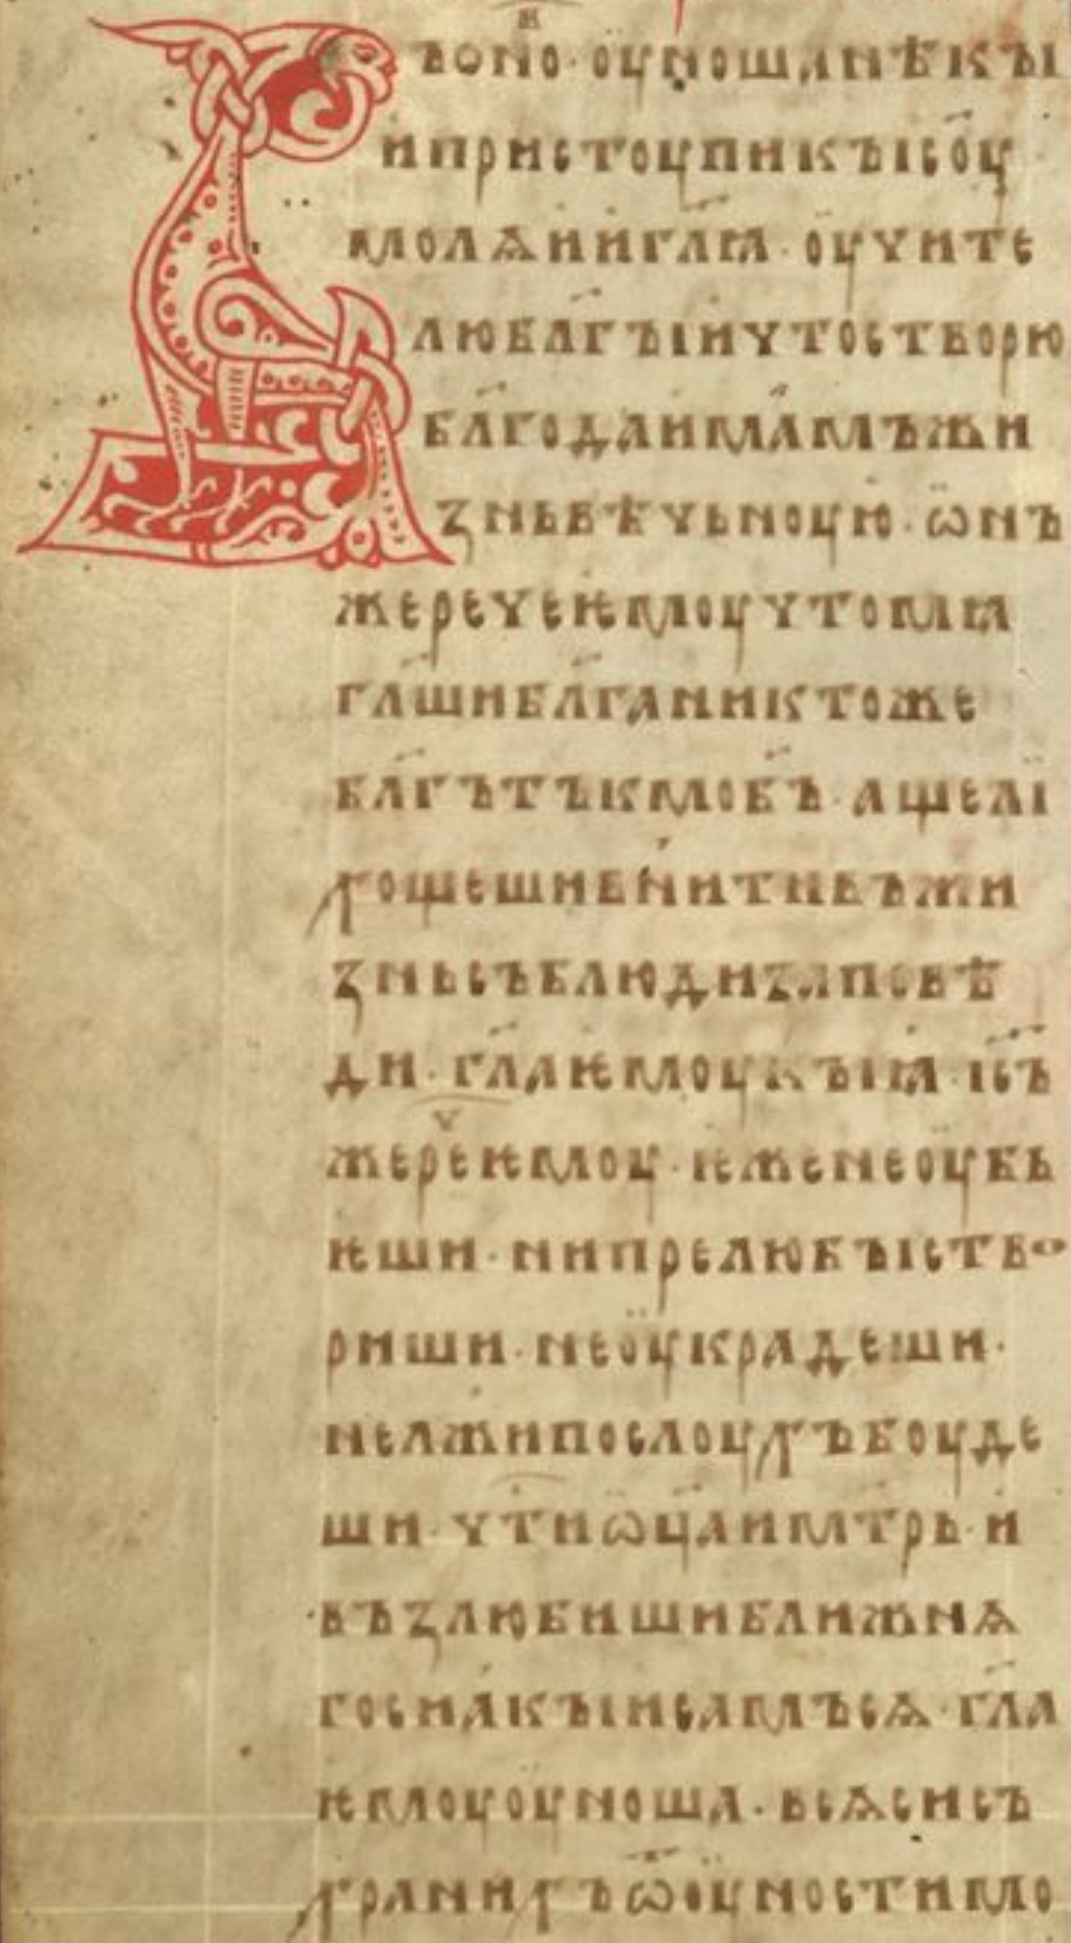 ъоно оуноша нѣкъі
и пристоупи къ ісоу
молѧи и гл҃ѧ · оучите
лю бл҃гъіи что створю
бл҃го да имамъ жи
знь вѣчьноую · ѡнъ
же рече ѥмоу что мѧ
гл҃ши бл҃га никтоже
бл҃гъ тъкмо б҃ъ · аще лі
хощеши внити въ жи
знь съблюди заповѣ
ди · гл҃а ѥмоу къіꙗ · іс҃ъ
же реч ѥмоу · ѥже не оубь
ѥши · ни прелюбъі ство
риши · не оукрадеши ·
не лжи послоухъ боуде
ши · чти ѡц҃а и мт҃рь · и
възлюбиши ближнѧ
го си ꙗкъі и самъ сѧ · гл҃а
ѥмоу оуноша · всѧ си съ
храних ъ ѿ оуности мо